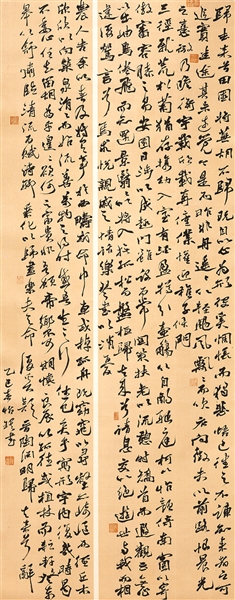 歸去來兮田園將蕪胡不歸既自以心為形役奚惆悵而獨悲悟已往之不諫知來者之可
追實迷途其未遠覺今是而昨非舟遙遙以輕颺風飄飄而吹衣問征夫以前路恨晨光
之熹微乃瞻衡宇載欣載奔僮僕歡迎稚子候門
三徑就荒松菊猶存攜幼入室有酒盈樽引壺觴以自酌眄庭柯以怡顏倚南窗以寄
傲審容膝之易安園日涉以成趣門雖設而常關策扶老以流憩時矯首而遐觀雲無心
以出岫鳥倦飛而知還景翳翳以將入撫孤松而盤桓歸去來兮請息交以絕遊世與我而相
違復駕言兮焉求悅親戚之情話樂琴書以消憂
農人告余以春及將有事於西疇或命巾車或棹孤舟既窈窕以尋壑亦崎嶇而經丘
木欣欣以向榮泉涓涓而始流善萬物之得時感吾生之行休已矣乎寓形宇內復幾時曷
不委心任去留胡為乎遑遑欲何之富貴非吾願帝鄉不可期懷良辰以孤往或植杖而耘耔登東
皋以舒嘯臨清流而賦詩聊乘化以歸盡樂夫天命復奚疑 晉陶淵明歸去來兮辭
乙巳春 書